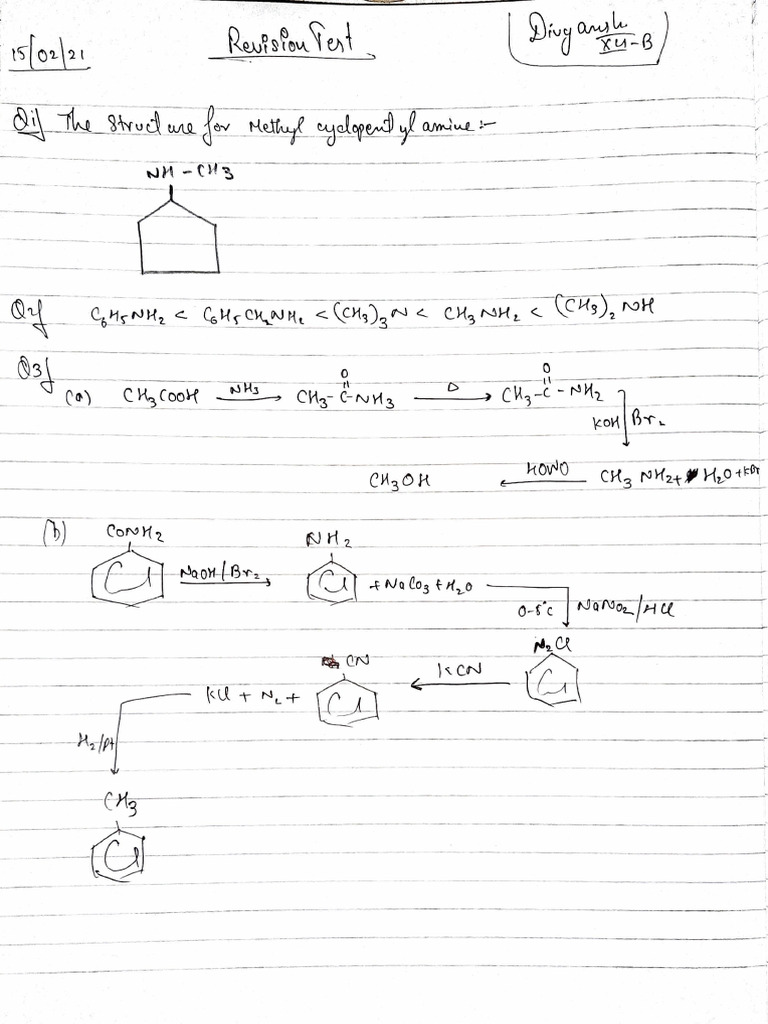 15/02/21
Revision Test
Divyansh
XII-B
Q1) The Structure for Methyl cyclopentyl amine :-
NH - CH3
Q2) C6H5NH2 < C6H5CH2NH2 < (CH3)3N < CH3NH2 < (CH3)2NH
Q3)
(a) CH3COOH NH3 → CH3-C-NH3 Δ → CH3-C-NH2
O O
KOH Br2
CH3OH ← HONO CH3NH2 + H2O + KBr
(b) CONH2 NH2
NaOH/Br2 → + NaCO3 + H2O
0-5°c NaNO2/HCl
N2Cl
CN
KCl + N2 + ← KCN
H2/Pt
CH3